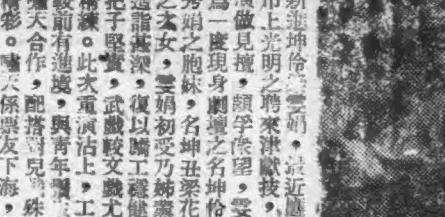 新進坤伶雯雯娟，最近應
市上光明之聘來津獻技，
做見擅，頗孚衆望，雯
爲一度現身劇壇之名坤伶
秀娟之胞妹，名坤丑梁花
之次女，雯娟初受乃姊薰
造詣甚深，復以蹻工穩健
把子堅實，武戲較文戲尤
練。此次重演沽上，工
較前有進境，與青年
天合作，配搭對兒
精彩。嘯天係票友下海，